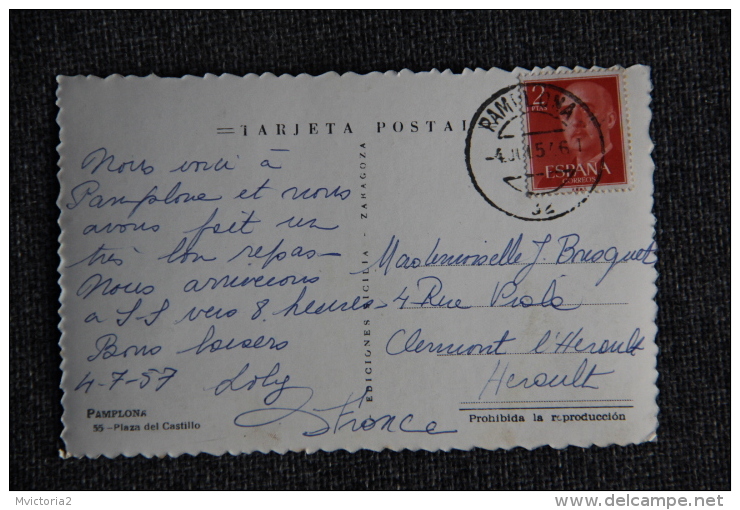 TARJETA POSTAL
Nous voici à
Pamplone et nous
avons fait un
très bon repas
Nous arriverons
a S.S vers 8. heures
Bons baisers
4-7-57 Loly
PAMPLONA
55 - Plaza del Castillo
EDICIONES SICILIA - ZARAGOZA
PAMPLONA
2
PTAS
ESPAÑA
CORREOS
Mademoiselle J. Bresquet
4 Rue Piala
Clermont l'Herault
Herault
France
Prohibida la reproducción
Mvictoria2
delcampe.net